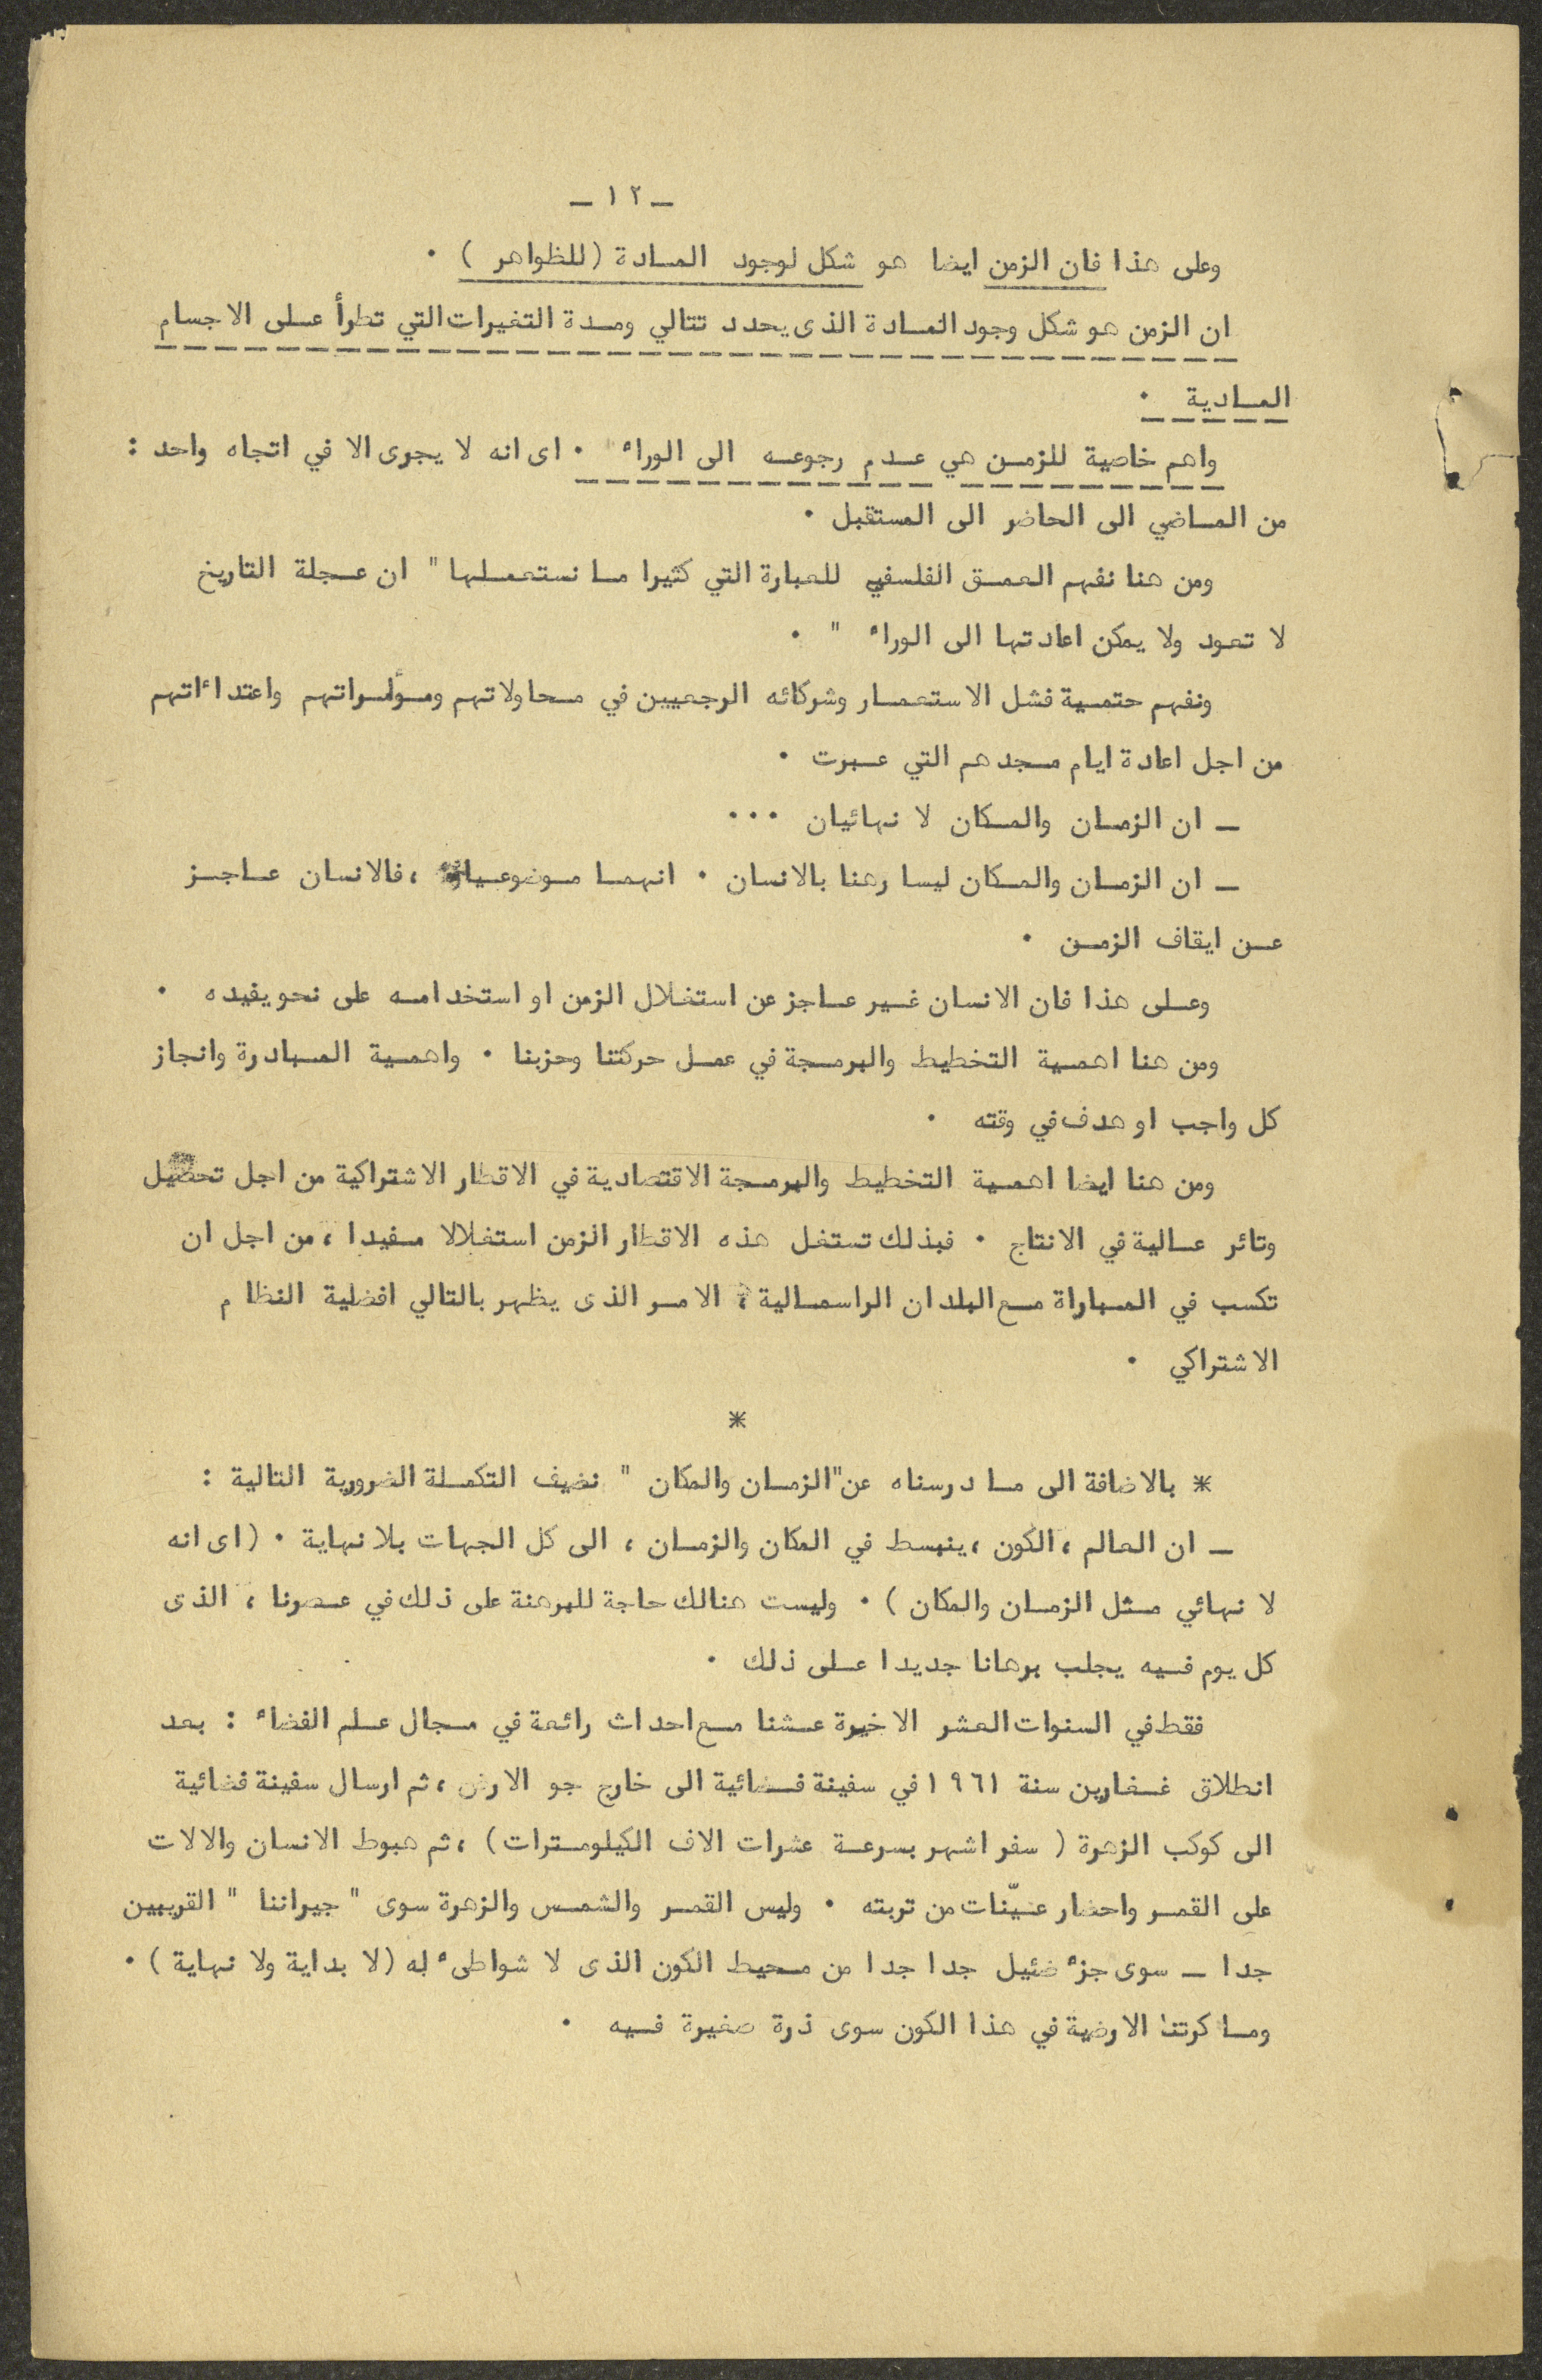 ـ ١٢ ـ
وعلى هذا فان الزمن ايضا هو شكل لوجود المادة (للظواهر) ٠
ان الزمن هو شكل وجود المادة الذى يحدد تتالي ومدة التغيرات التي تطرأ على الاجسام
المادية ٠
واهم خاصية للزمن هي عدم رجوعه الى الوراء ٠ اى انه لا يجرى الا في اتجاه واحد :
من الماضي الى الحاضر الى المستقبل ٠
ومن هنا نفهم العمق الفلسفي للعبارة التي كثيرا ما نستعملها " ان عجلة التاريخ
لا تعود ولا يمكن اعادتها الى الوراء " ٠
ونفهم حتمية فشل الاستعمار وشركائه الرجعيين في محاولاتهم ومؤامراتهم واعتداءاتهم
من اجل اعادة ايام مجدهم التي عبرت ٠
ـ ان الزمان والمكان لا نهائيان ٠٠٠
ـ ان الزمان والمكان ليسا رهنا بالانسان ٠ انهما موضوعيان ، فالانسان عاجز
عن ايقاف الزمن ٠
وعلى هذا فان الانسان غير عاجز عن استغلال الزمن او استخدامه على نحو يفيده ٠
ومن هنا اهمية التخطيط والبرمجة في عمل حركتنا وحزبنا ٠ واهمية المبادرة وانجاز
كل واجب او هدف في وقته ٠
ومن هنا ايضا اهمية التخطيط والبرمجة الاقتصادية في الاقطار الاشتراكية من اجل تحصيل
وتائر عالية في الانتاج ٠ فبذلك تستغل هذه الاقطار الزمن استغلالا مفيدا ، من اجل ان
تكسب في المباراة مع البلدان الراسمالية ، الامر الذى يظهر بالتالي افضلية النظام
الاشتراكي ٠
*
* بالاضافة الى ما درسناه عن "الزمان والمكان " نضيف التكملة الضرورية التالية :
ـ ان العالم ، الكون ، ينبسط في المكان والزمان ، الى كل الجهات بلا نهاية ٠ (اى انه
لا نهائي مثل الزمان والمكان) ٠ وليست هنالك حاجة للبرهنة على ذلك في عصرنا ، الذى
كل يوم فيه يجلب برهانا جديدا على ذلك ٠
فقط في السنوات العشر الاخيرة عشنا مع احداث رائعة في مجال علم الفضاء : بعد
انطلاق غغارين سنة ١٩٦١ في سفينة فضائية الى خارج جو الارض ، ثم ارسال سفينة فضائية
الى كوكب الزهرة ( سفر اشهر بسرعة عشرات الاف الكيلومترات) ، ثم هبوط الانسان والالات
على القمر واحضار عيّنات من تربته ٠ وليس القمر والشمس والزهرة سوى " جيراننا " القريبين
جدا ـ سوى جزء ضئيل جدا جدا من محيط الكون الذى لا شواطىء له (لا بداية ولا نهاية) ٠
وما كرتنا الارضية في هذا الكون سوى ذرة صغيرة فيه ٠